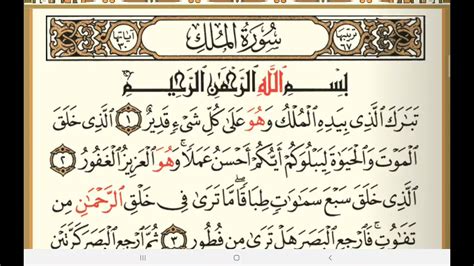 آياتها ٣٠ سُورَةُ المُلْكِ ترتيبها ٦٧
بِسْمِ اللَّهِ الرَّحْمَٰنِ الرَّحِيمِ
تَبَارَكَ الَّذِي بِيَدِهِ الْمُلْكُ وَهُوَ عَلَىٰ كُلِّ شَيْءٍ قَدِيرٌ ١ الَّذِي خَلَقَ
الْمَوْتَ وَالْحَيَوٰةَ لِيَبْلُوَكُمْ أَيُّكُمْ أَحْسَنُ عَمَلًا ۚ وَهُوَ الْعَزِيزُ الْغَفُورُ ٢
الَّذِي خَلَقَ سَبْعَ سَمَٰوَٰتٍ طِبَاقًا ۖ مَّا تَرَىٰ فِي خَلْقِ الرَّحْمَٰنِ مِن
تَفَٰوُتٍ ۖ فَارْجِعِ الْبَصَرَ هَلْ تَرَىٰ مِن فُطُورٍ ٣ ثُمَّ ارْجِعِ الْبَصَرَ كَرَّتَيْنِ